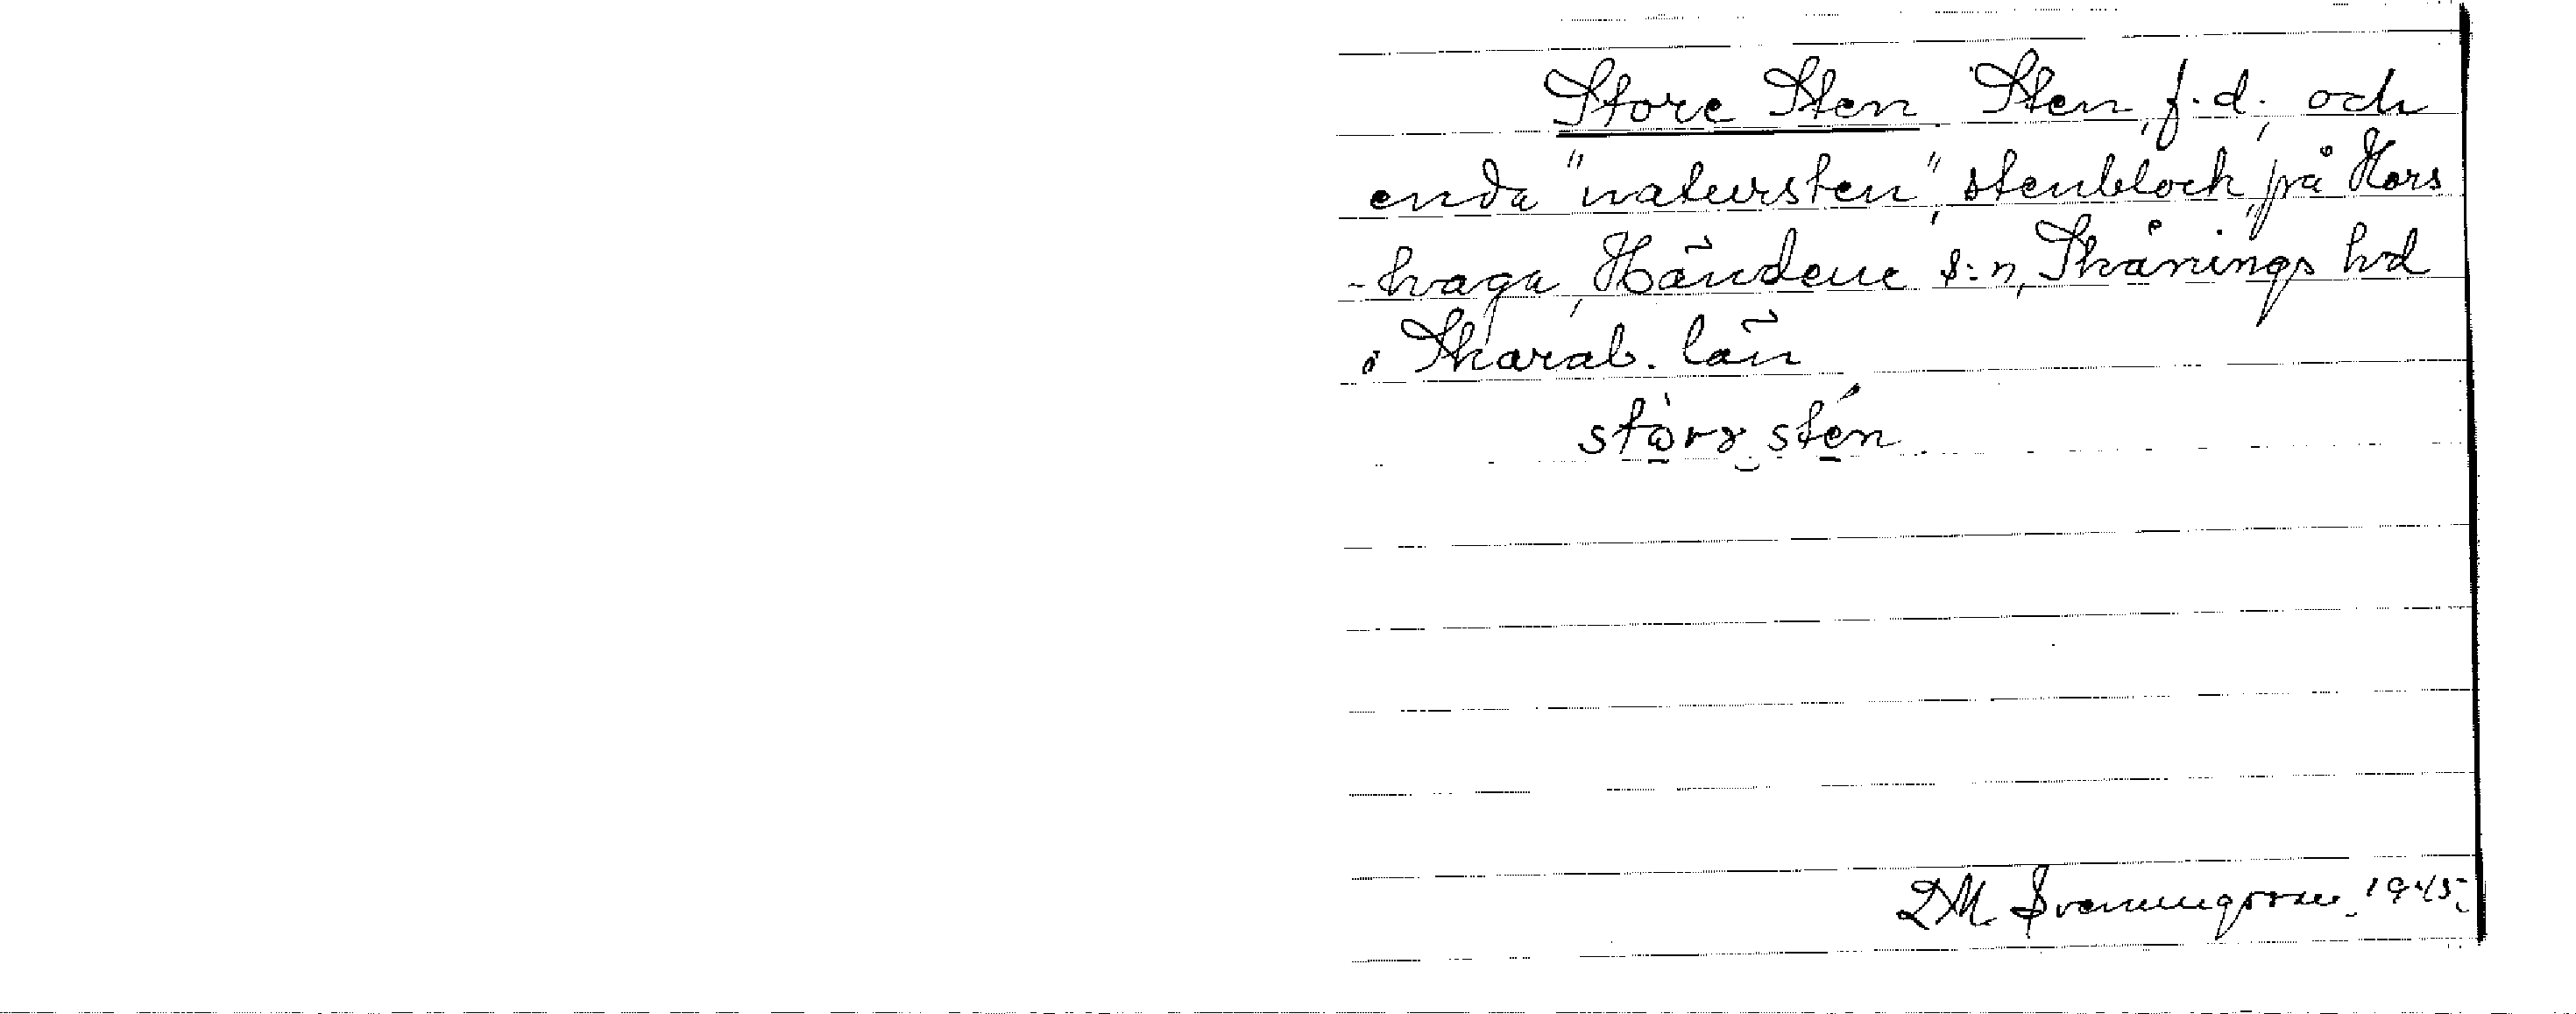 Store Sten. Sten, f.d., och
enda "natursten", stenblock, på Hors
-haga, Händene s:n, Skånings hd
i Skarab. län
störə stén
D.M. Svenningsson 1945.